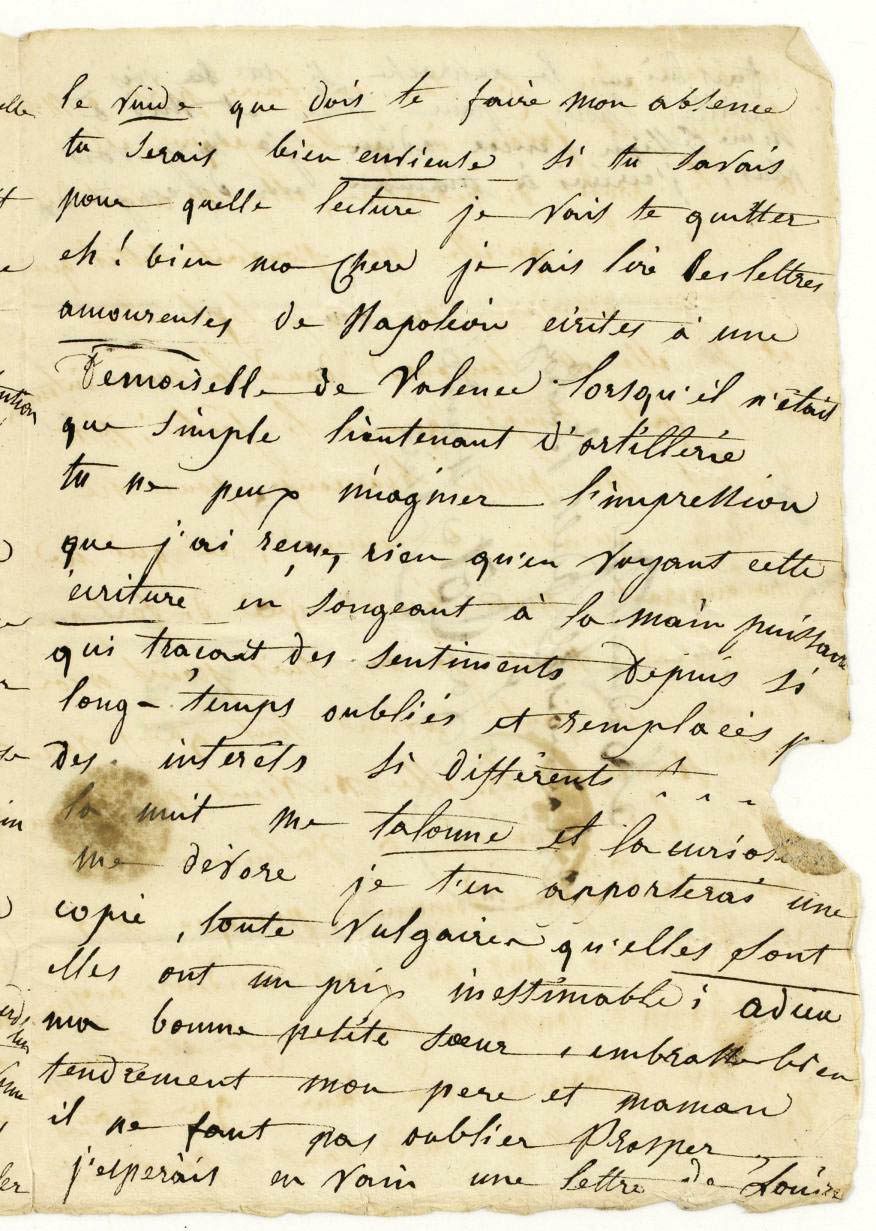 le vuide que dois te faire mon absence
tu serais bien envieuse si tu savais
pour quelle lecture je vais te quitter
eh ! bien ma chere je vais lire les lettres
amoureuses de Napoleon ecrites à une
Demoiselle de Valence lorsqu'il n'était
que simple lieutenant d'artillerie
tu ne peux imaginer l'impression
que j'ai reçue, rien qu'en voyant cette
écriture en songeant à la main puissante
qui traçait des sentiments depuis si
long-temps oubliés et remplacés p
des interets si différents !
la nuit me talonne et la curios
me dévore je t'en apporterai une
copie, toute vulgaires qu'elles sont
elles ont un prix inestimable ; adieu
ma bonne petite sœur, embrasse bien
tendrement mon pere et maman
il ne faut pas oublier Prosper,
j'esperais en vain une lettre de Louise